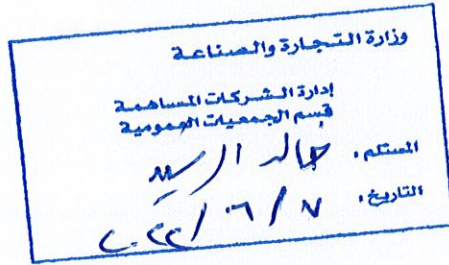 وزارة التجارة والصناعة
إدارة الشركات المساهمة
قسم الجمعيات العمومية
المستلم، خالد الرسيد
التاريخ، ٢٠٢٢/٠٦/٧